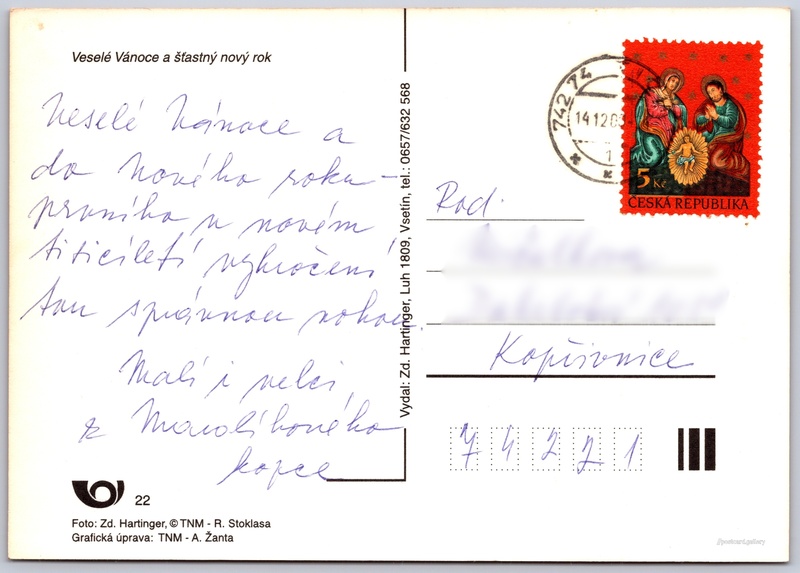 Veselé Vánoce a šťastný nový rok
Veselé Vánoce a
do Nového roku –
prvního v novém
tisíciletí vykročení
tou správnou nohou.
Malí i velcí
z
kopce
22
Foto: Zd. Hartinger, © TNM - R. Stoklasa
Grafická úprava: TNM - A. Žanta
Vydal: Zd. Hartinger, Luh 1809, Vsetín, tel.: 0657/632 568
742 74
14.12.
1
5 Kč
ČESKÁ REPUBLIKA
Rod.
Kopřivnice
74221
//postcard.gallery